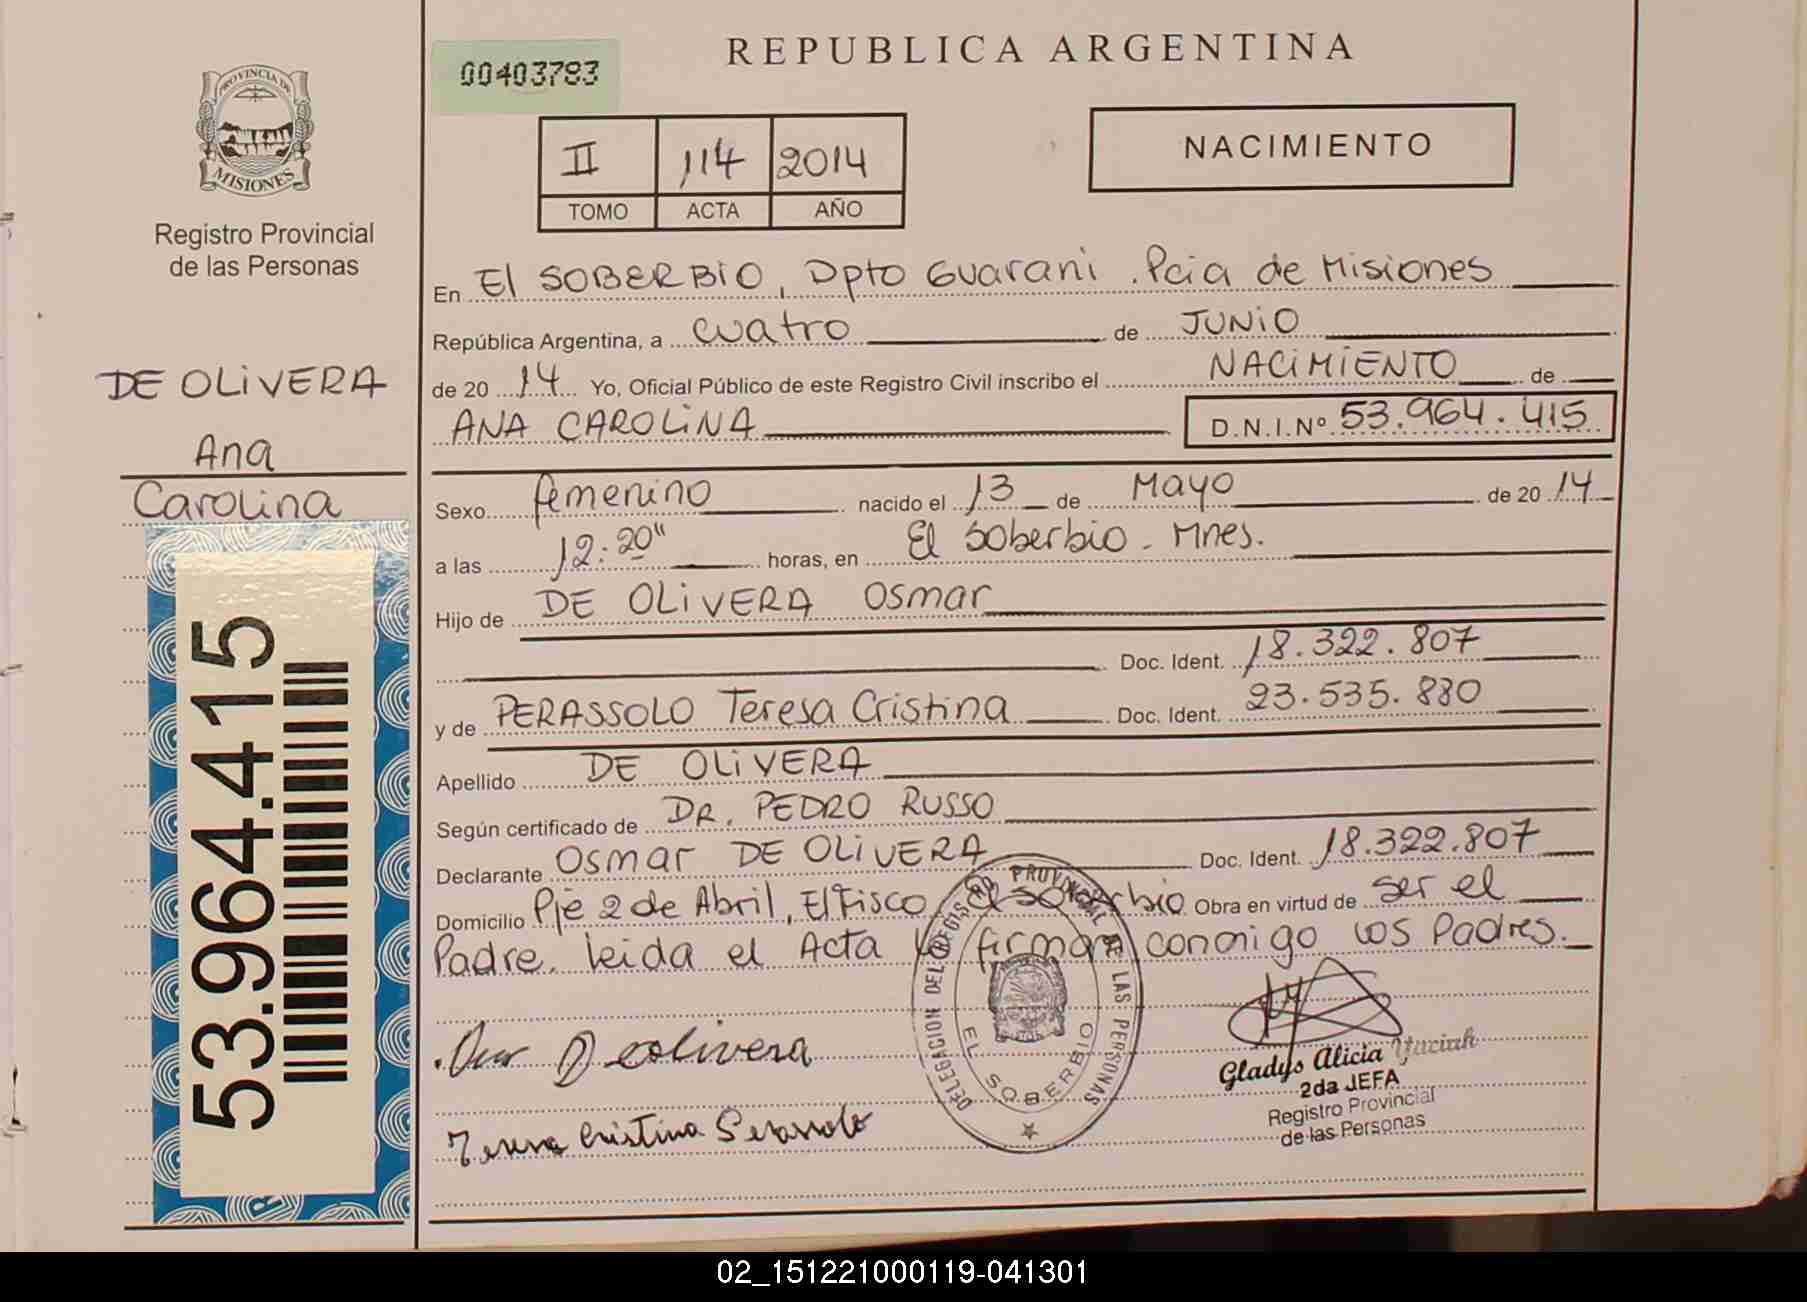 REPUBLICA ARGENTINA
00403783
NACIMIENTO
II 114 2014
TOMO ACTA AÑO
PROVINCIA DE
MISIONES
Registro Provincial
de las Personas
DE OLIVERA
Ana
Carolina
53.964.415
En El SOBERBIO, Dpto Guarani. Pcia de Misiones
República Argentina, a cuatro de JUNIO
de 20 14 Yo, Oficial Público de este Registro Civil inscribo el NACIMIENTO de
ANA CAROLINA D.N.I.Nº 53.964.415
Sexo femenino nacido el 13 de Mayo de 20 14
a las 12:20" horas, en El Soberbio - Mnes.
Hijo de DE OLIVERA Osmar
Doc. Ident. 18.322.807
y de PERASSOLO Teresa Cristina Doc. Ident. 23.535.830
Apellido DE OLIVERA
Según certificado de DR. PEDRO RUSSO
Declarante Osmar DE OLIVERA Doc. Ident. 18.322.807
Domicilio Pje 2 de Abril, El Fisco, El Soberbio Obra en virtud de ser el
Padre. leida el Acta la firman conmigo los Padres.
DELEGACION DEL REGISTRO PROVINCIAL DE LAS PERSONAS
EL SOBERBIO
Deolivera
Teresa Cristina Perassolo
Gladys Alicia Yaciuk
2da JEFA
Registro Provincial
de las Personas
02_151221000119-041301